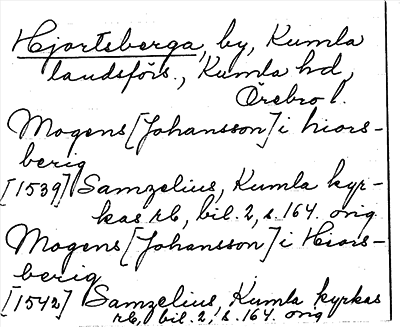 Hjortsberga, by, Kumla
landsförs., Kumla hd,
Örebro l.
Mogens [Johansson] i hiors-
berig
[1539] Samzelius, Kumla kyr-
kas rb, bil. 2, s. 164. orig
Mogens [Johansson] i Hiors-
berig
[1542] Samzelius, Kumla kyrkas
rb, bil. 2, s. 164. orig